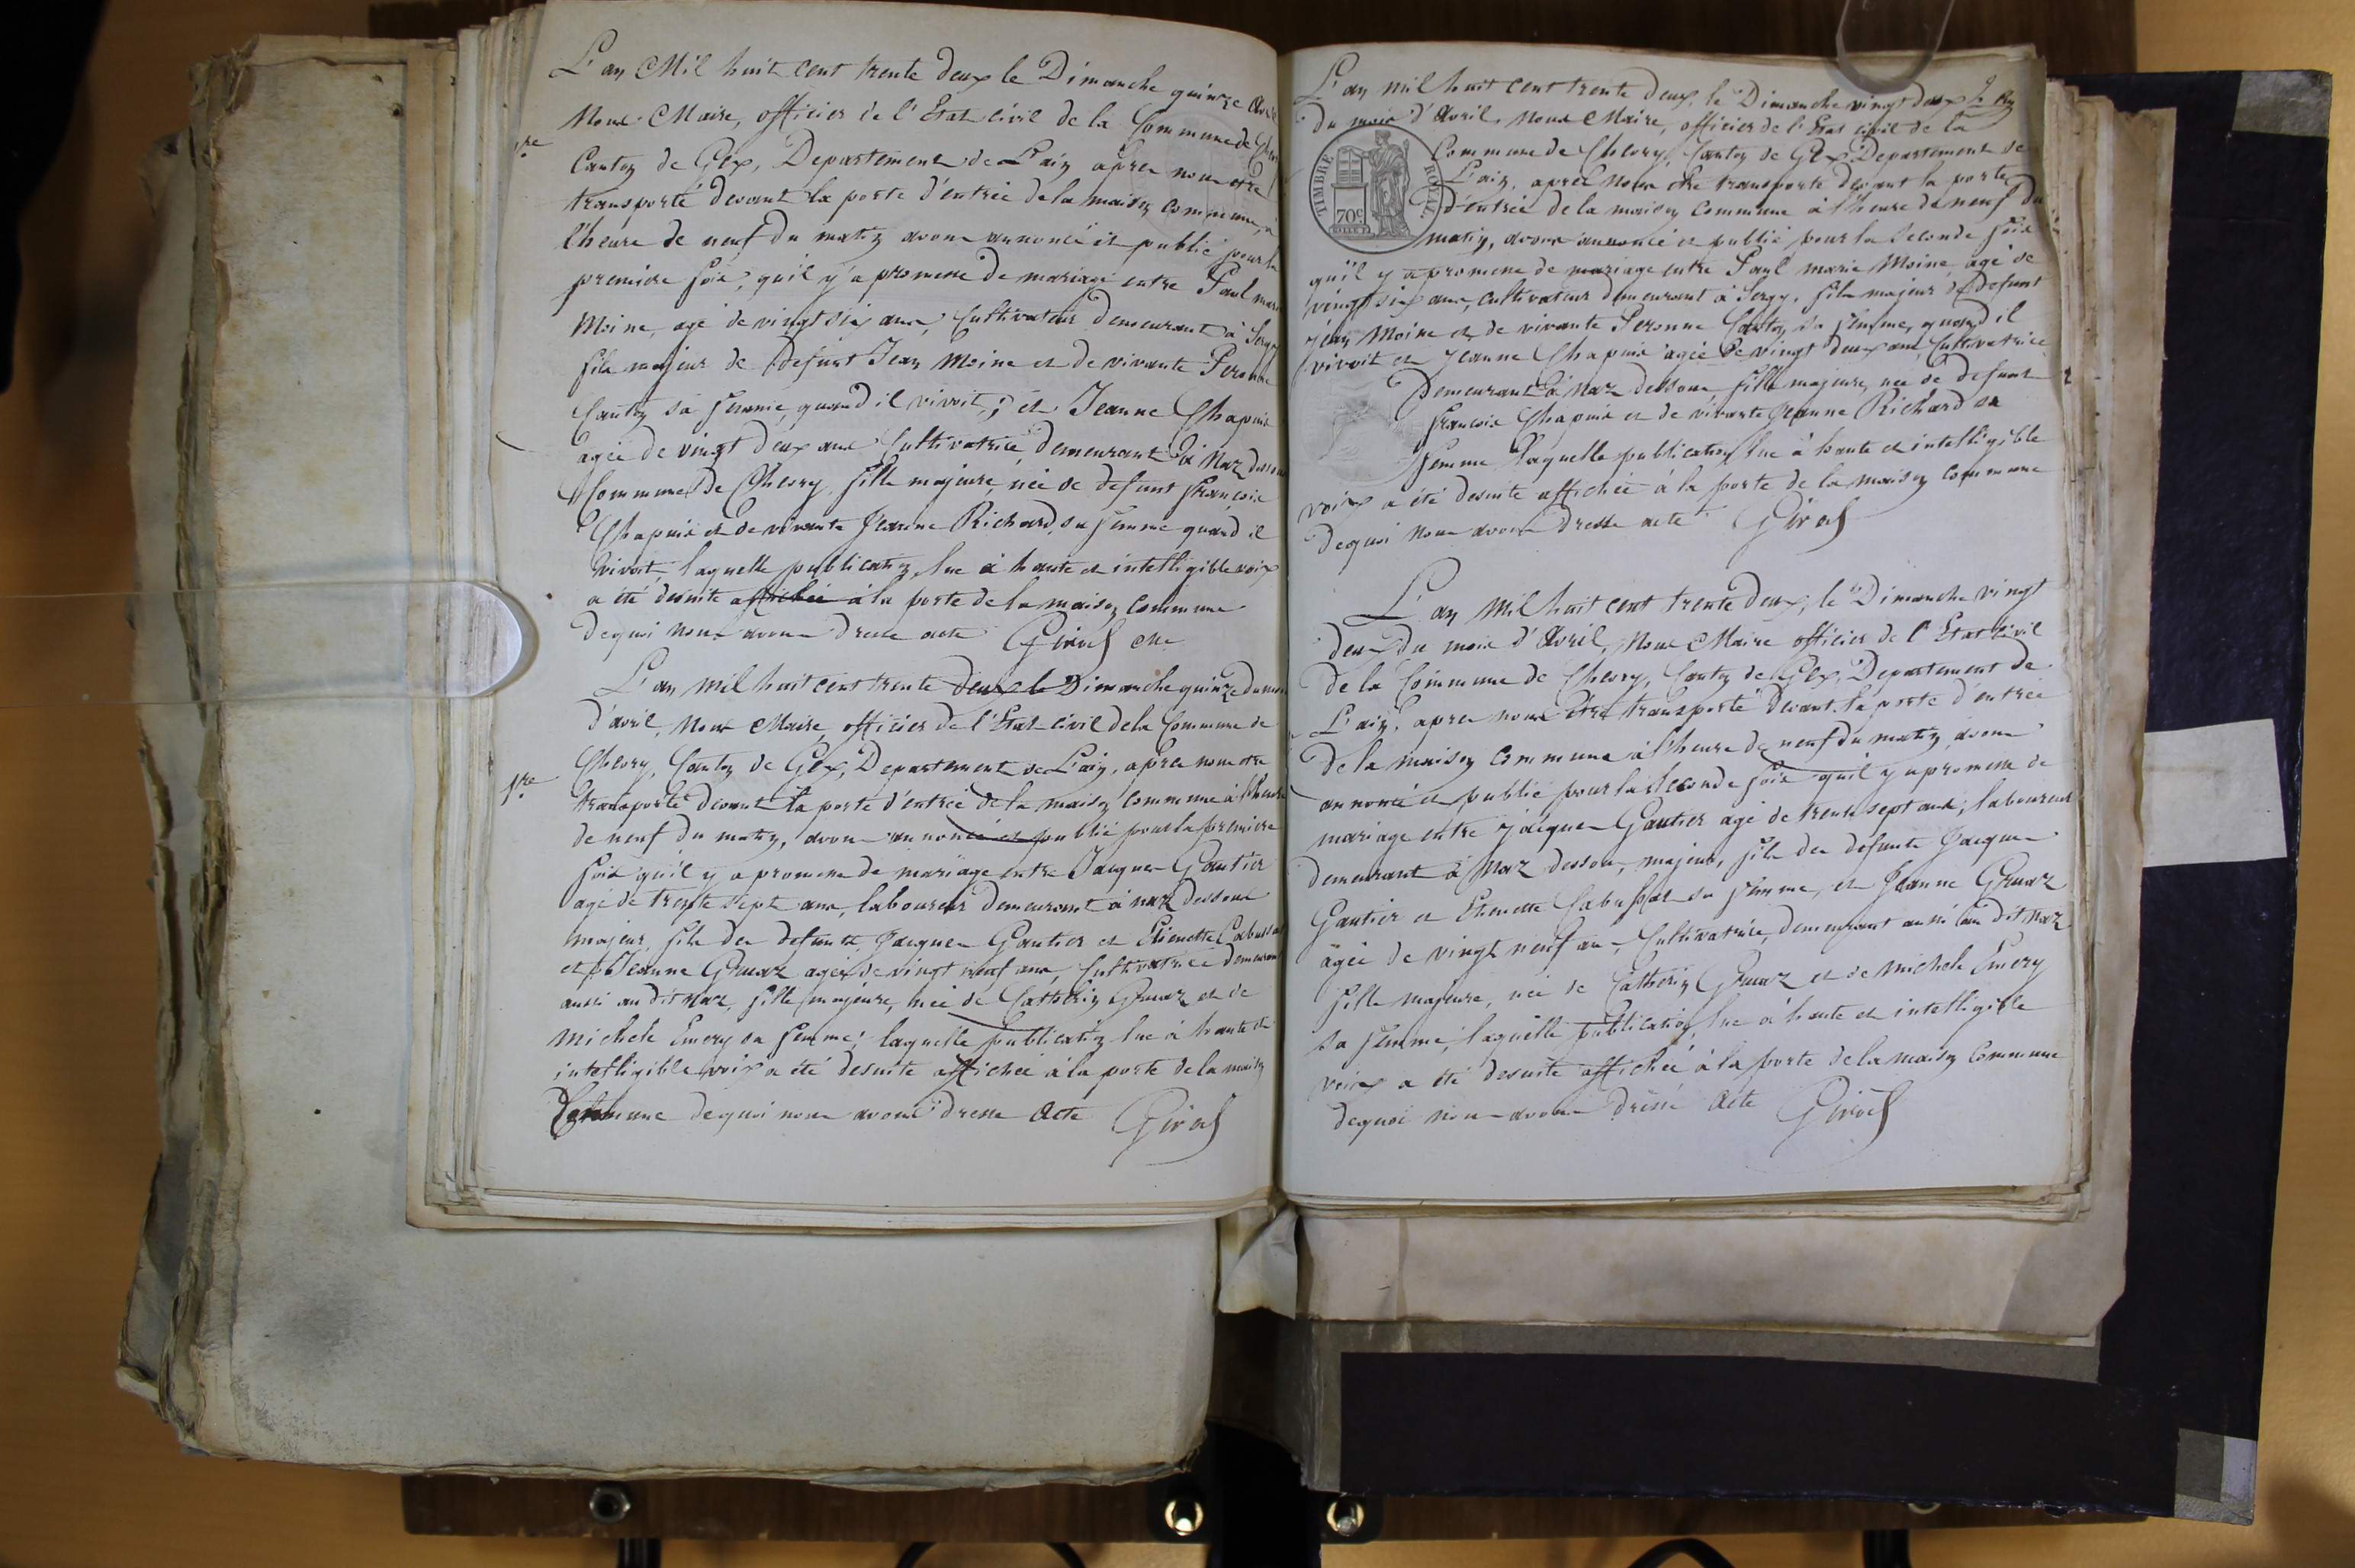 L'an Mil huit cent trente deux le Dimanche quinze Avril
Nous Maire, officier de l'Etat civil de la Commune de
1re
Canton de Gex, Departement de L'ain après nous etre
transporté devant la porte d'entrée de la maison commune, à
l'heure de neuf du matin avons annoncé et publié pour la
premiere fois, quil y'a promesse de mariage entre Paul marie
Moine, agé de vingt six ans, Cultivateur demeurant à Sergy
fils majeur de defunt Jean Moine et de vivante Peronne
Canton sa femme, quand il vivoit; et Jeanne Chapuis
agée de vingt deux ans Cultivatrice, demeurant à Naz dessous
Commune de Chevry, fille majeure, née de defunt francois
Chapuis et de vivante Jeanne Richard, sa femme quand il
vivoit, laquelle publication, lue à haute et intelligible voix
a été desuite affichée à la porte de la maison commune
dequoi nous avons dressé acte Girod
L'an Mil huit cent trente deux le Dimanche quinze du mois
d'avril, Nous Maire, officier de l'Etat civil de la Commune de
Chevry, Canton de Gex, Departement de L'ain, après nous etre
1re
transporté devant la porte d'entrée de la maison commune à l'heure
de neuf du matin, avons annoncé et publié pour la premiere
fois quil y a promesse de mariage entre Jacques Gautier
agé de trente sept ans, laboureur demeurant à naz dessous
majeur, fils des defunts Jacques Gautier et Etienette Cabussat
et Jeanne Gruaz agée de vingt neuf ans, Cultivatrice demeurant
aussi au dit Naz, fille majeure, née de Catherin Gruaz et de
Michele Emery sa femme; laquelle publication lue à haute et
intelligible voix a été desuite affichée à la porte de la maison
Commune dequoi nous avons dressé Acte Girod
L'an mil huit cent trente deux, le Dimanche vingt deux
du mois d'Avril, Nous Maire, officier de l'Etat civil de la
Commune de Chevry, Canton de Gex, Departement de
L'ain, après nous etre transporté devant la porte
d'entrée de la maison commune à l'heure de neuf du
TIMBRE ROYAL.
70c
matin, avons annoncé et publié pour la seconde fois
qu'il y a promesse de mariage entre Paul marie Moine, agé de
vingt six ans, cultivateur demeurant à Sergy, fils majeur de defunt
jean Moine et de vivante Peronne Canton sa femme, quand il
vivoit et Jeanne Chapuis agée de vingt deux ans Cultivatrice
demeurant à Naz dessous fille majeure, née de defunt
francois Chapuis et de vivante Jeanne Richard sa
femme laquelle publication lue à haute et intelligible
voix a été desuite affichée à la porte de la maison commune
dequoi nous avons dressé acte Girod
L'an Mil huit cent trente deux, le Dimanche vingt
deux du mois d'Avril, Nous Maire officier de l'Etat civil
de la Commune de Chevry, Canton de Gex, Departement de
L'ain, après nous être transporté devant la porte d'entrée
de la maison commune à l'heure de neuf du matin, avons
annoncé et publié pour la seconde fois quil y a promesse de
mariage entre jacques Gautier agé de trente sept ans, laboureur
demeurant à Naz dessous, majeur, fils des defunts Jacques
Gautier et Etienette Cabussat sa femme, et Jeanne Gruaz
agée de vingt neuf ans, Cultivatrice, demeurant aussi au dit Naz
fille majeure, née de Catherin Gruaz et de Michele Emery
sa femme, laquelle publication, lue à haute et intelligible
voix a été desuite affichée à la porte de la maison Commune
dequoi nous avons dressé Acte Girod